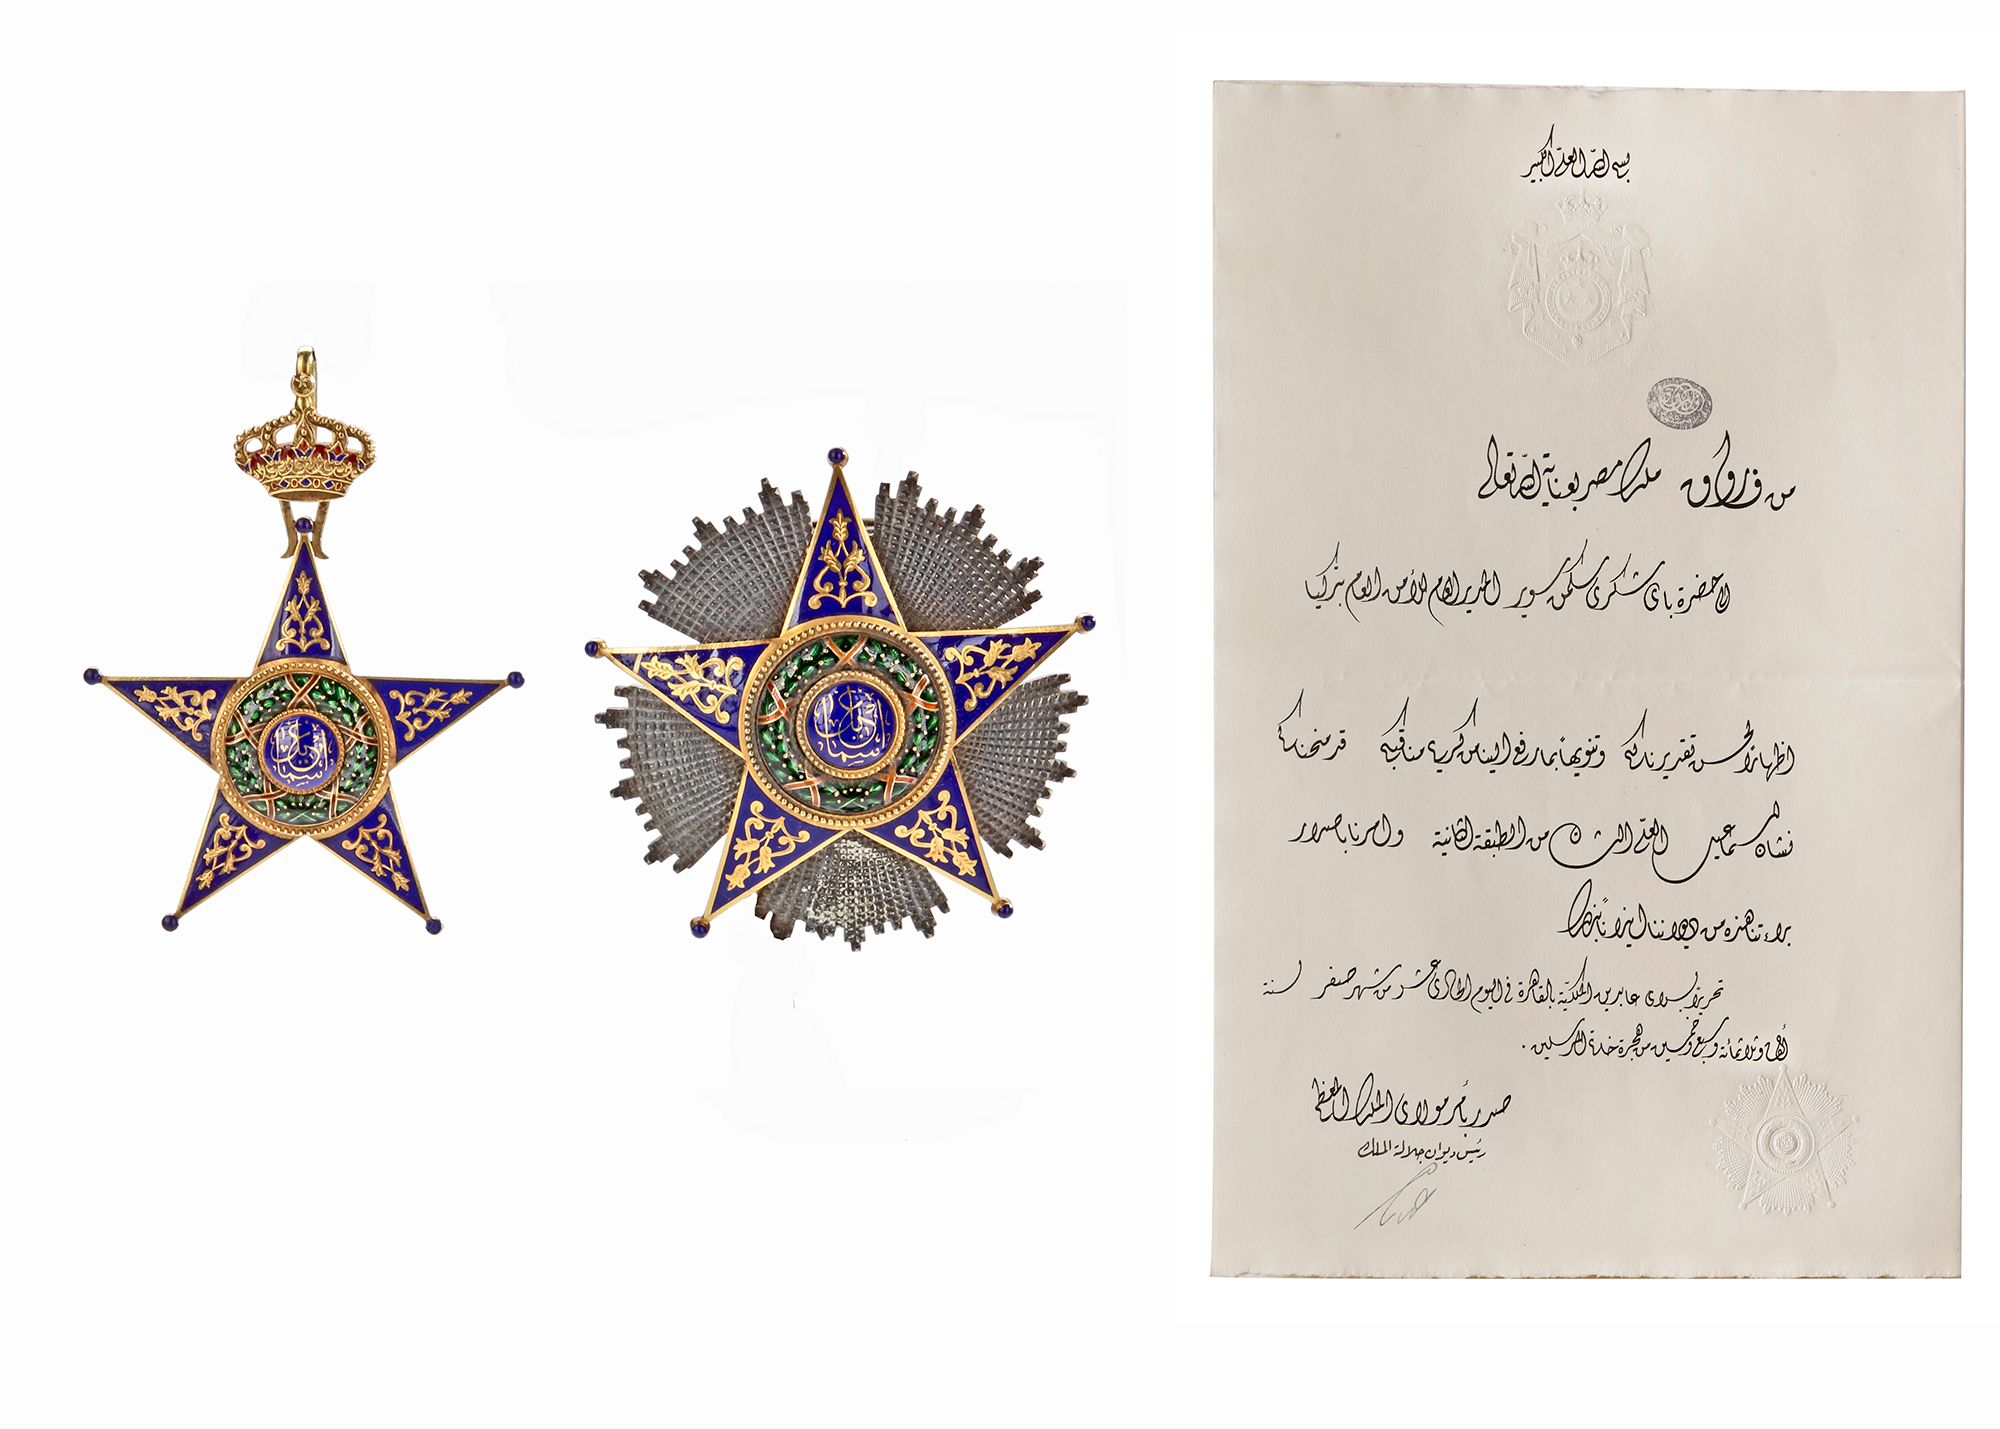 اسماعيل
اسماعيل
بسم الله العلي الكبير
من فاروق ملك مصر بعناية الله تعالى
الى حضرة باى شكرى سكمن سور المدير العام للأمن العام بتركيا
اظهارًا لحسن تقديرنا لكم وتنويهًا بما رفع الينا من كريم مناقبكم قد منحناكم
نشان اسماعيل العلي الشان من الطبقة الثانية وامرنا باصدار
براءتنا هذه من ديواننا ايذانًا بذلك
تحريرًا بسراى عابدين الملكية بالقاهرة فى اليوم الحادى عشر من شهر صفر سنة
ألف وثلاثمائة وسبع وخمسين من هجرة خاتم المرسلين .
صدر بأمر مولاى الملك المعظم
رئيس ديوان جلالة الملك